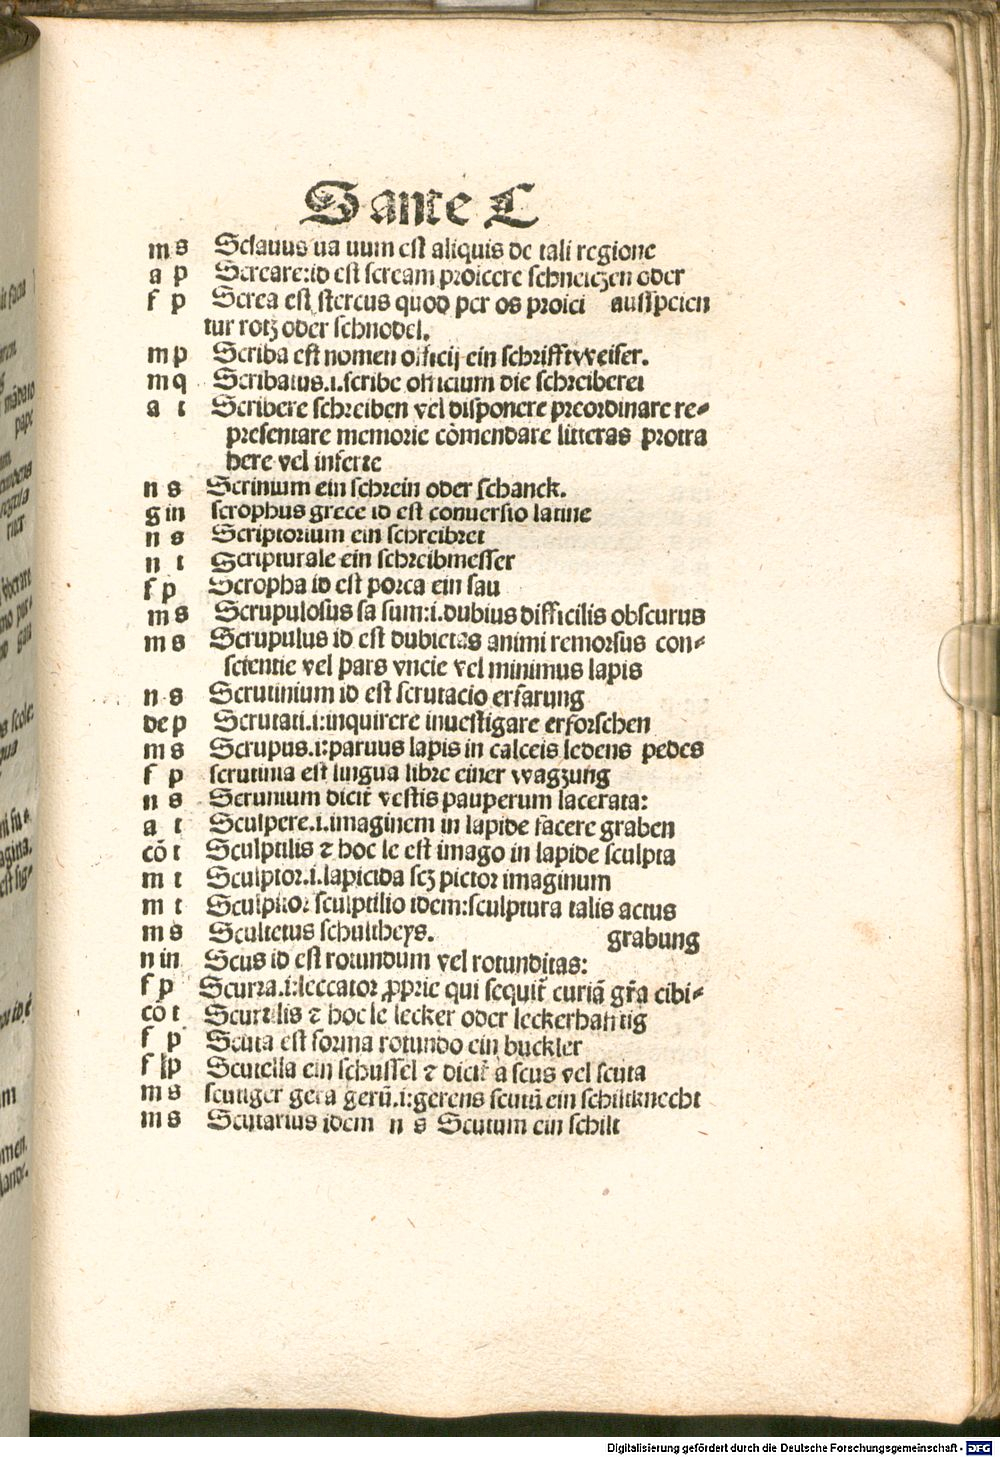 S ante C
m s Sclauus ua uum est aliquis de tali regione
a p Screare:id est scream proicere schneitzen oder
f p Screa est stercus quod per os proici ausspeien
tur rotz oder schnodel.
m p Scriba est nomen officij ein schrifftweiser.
m q Scribatus.i.scribe officium die schreiberei
a t Scribere schreiben vel disponere preordinare re-
presentare memorie cōmendare litteras protra
here vel inserere
n s Scrinium ein schrein oder schanck.
g in scrophus grece id est conuersio latine
n s Scriptorium ein schreibret
n t Scripturale ein schreibmesser
f p Scropha id est porca ein sau
m s Scrupulosus sa sum:i.dubius difficilis obscurus
m s Scrupulus id est dubietas animi remorsus con-
scientie vel pars vncie vel minimus lapis
n s Scrutinium id est scrutacio erfarung
de p Scrutari.i:inquirere inuestigare erforschen
m s Scrupus.i:paruus lapis in calceis ledens pedes
f p scrutinia est lingua libre einer wagzung
n s Scrunium dicit᷑ vestis pauperum lacerata:
a t Sculpere.i.imaginem in lapide facere graben
cō t Sculptilis ⁊ hoc le est imago in lapide sculpta
m t Sculptor.i.lapicida scz pictor imaginum
m t Sculptor sculptilio idem:sculptura talis actus
m s Scultetus schultheys. grabung
n in Scus id est rotundum vel rotunditas:
f p Scurra.i:leccator ꝓprie qui sequit᷑ curiā gr̄a cibi-
cō t Scurrilis ⁊ hoc le lecker oder leckerhafftig
f p Scuta est forma rotundo ein buckler
f p Scutella ein schussel ⁊ dicit᷑ a scus vel scuta
m s scutiger gera gerū.i:gerens scutū ein schiltknecht
m s Scutarius idem n s Scutum ein schilt
Digitalisierung gefördert durch die Deutsche Forschungsgemeinschaft - DFG